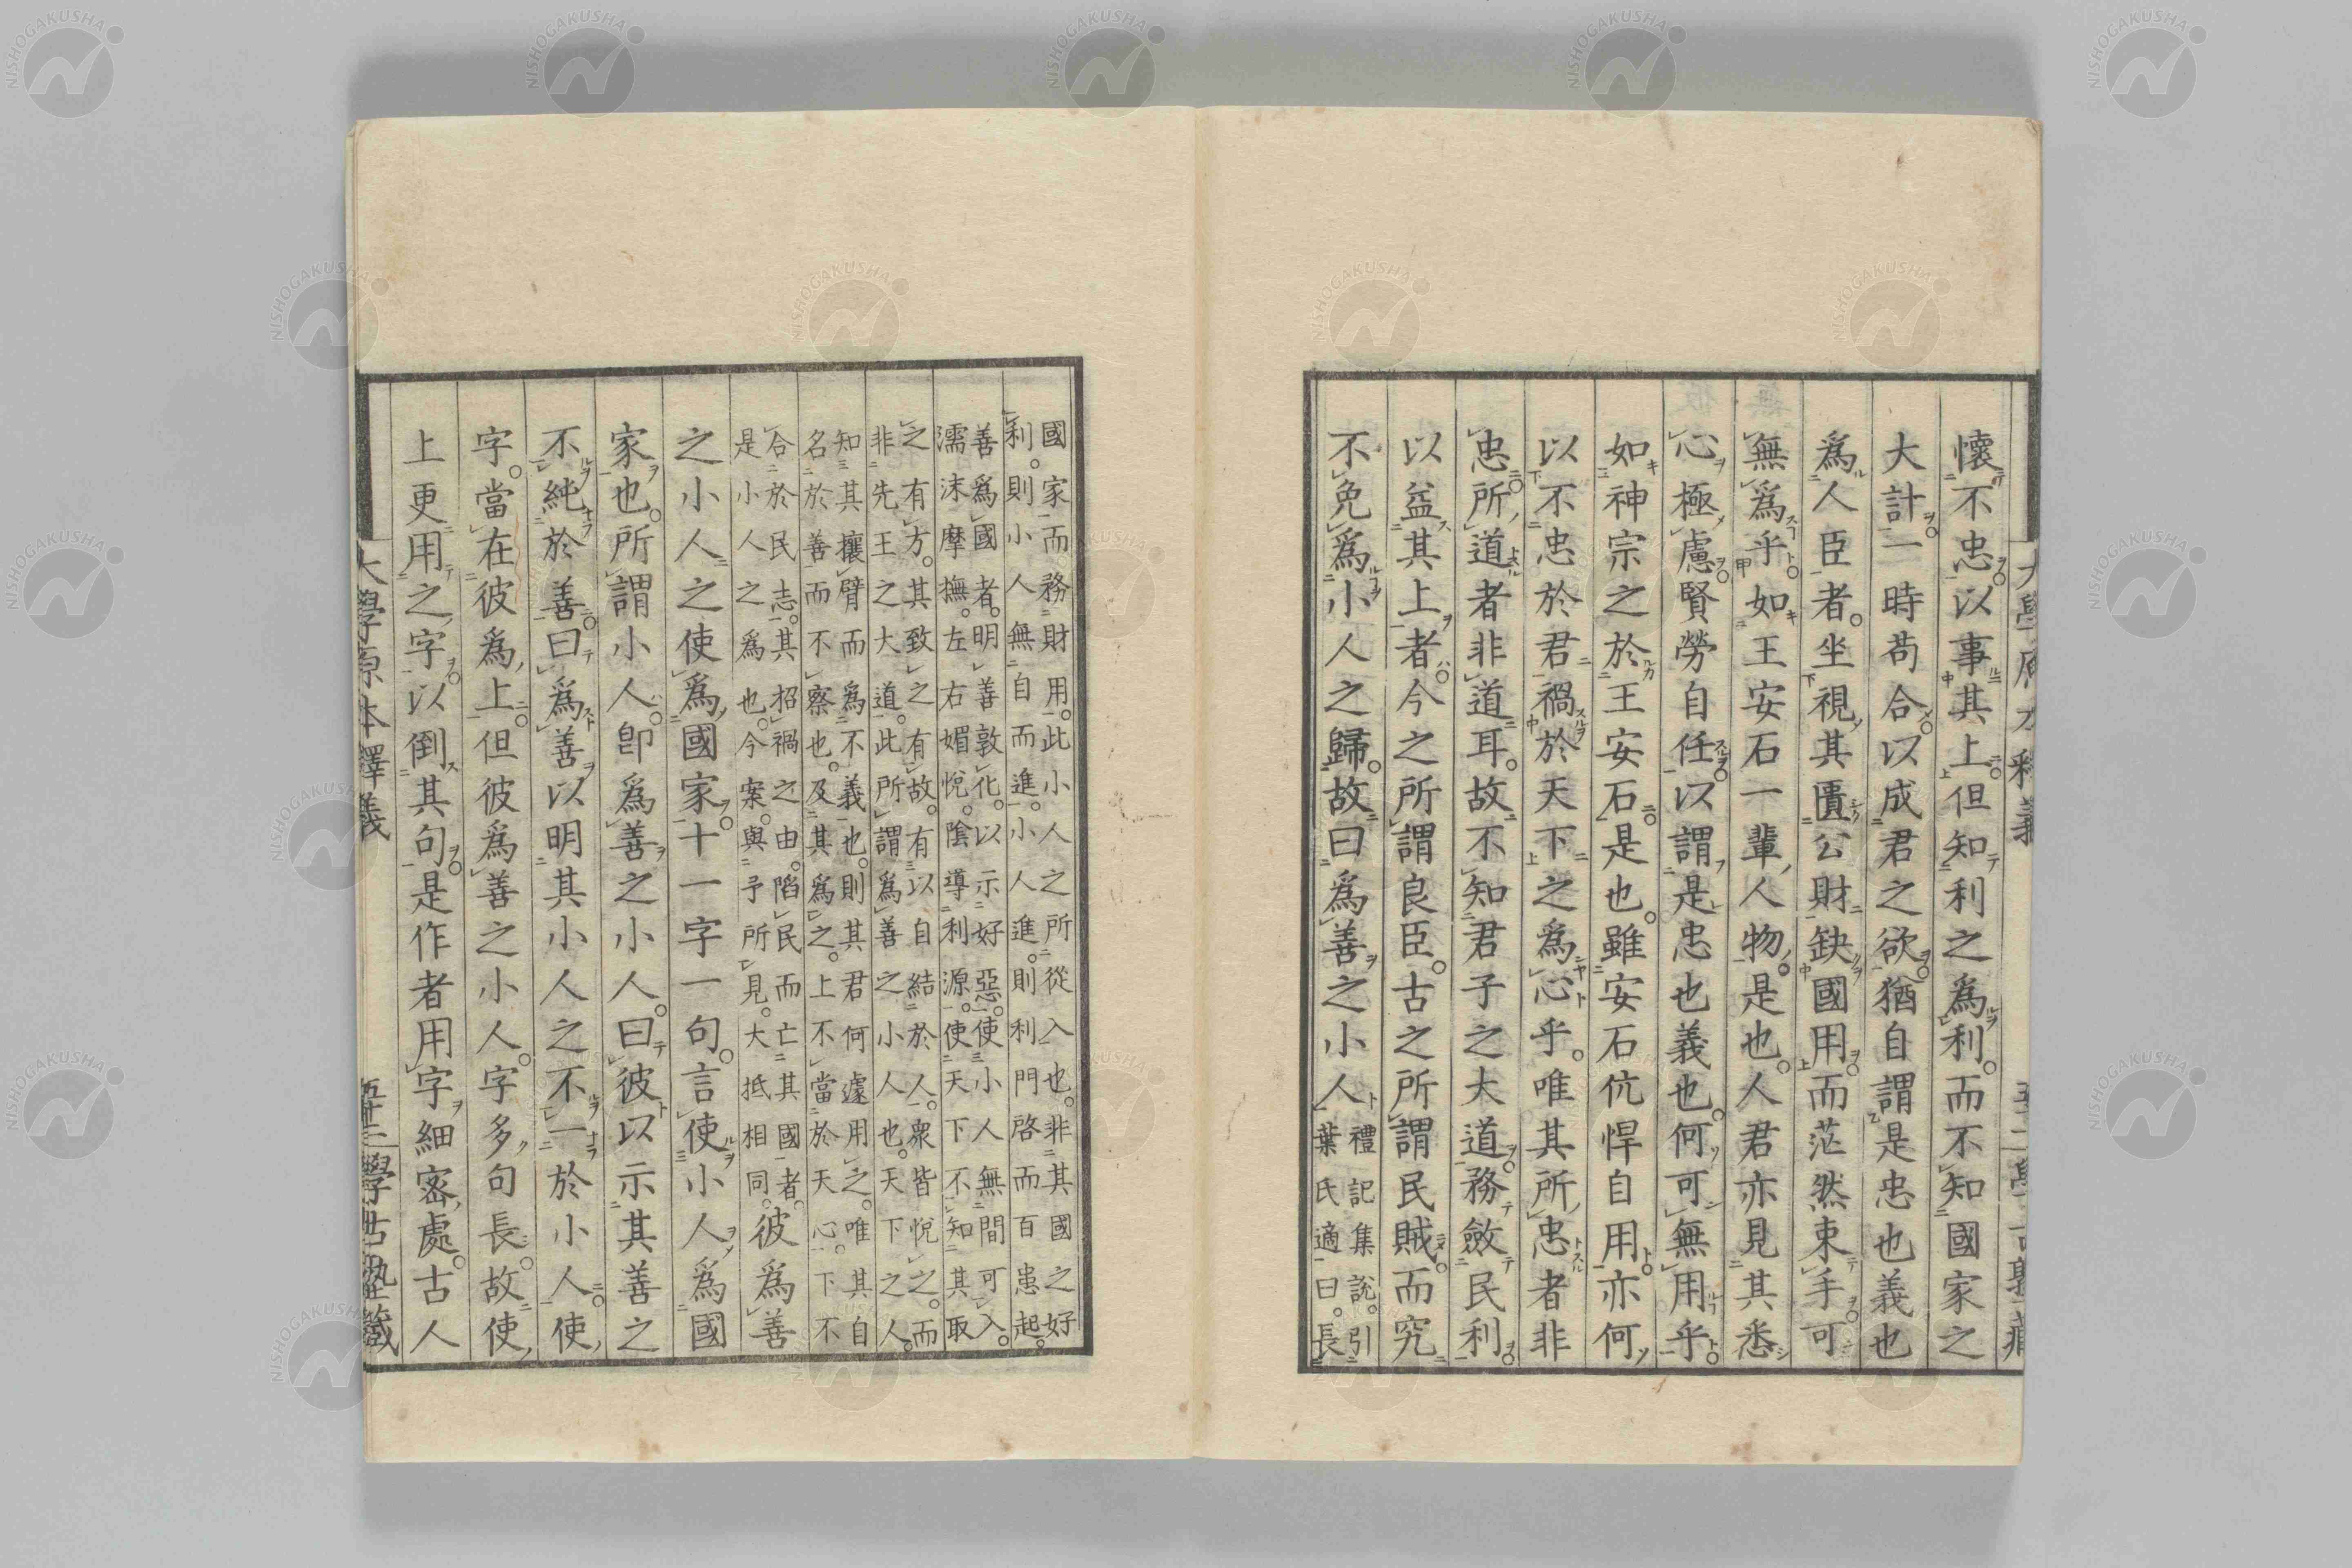 懷不忠以事其上但知利之爲利。而不知國家之
大計一時苟合以成君之欲猶自謂是忠也義也
爲人臣者。坐視其匱公財缺國用而茫然束手可
無爲乎如王安石一輩人物是也。人君亦見其悉
心極慮賢勞自任以謂是忠也義也。何可無用乎
如神宗之於王安石是也。雖安石伉悍自用亦何
以不忠於君禍於天下之爲心乎。唯其所忠者非
忠所道者非道耳。故不知君子之大道務斂民利
以益其上者今之所謂良臣。古之所謂民賊。而究
不免爲小人之歸。故曰爲善之小人
禮記集說。引
葉氏適曰。長
國家而務財用。此小人之所從入也。非其國之好
利。則小人無自而進。小人進。則利門啓而百患起。
善爲國者。明善敦化。以示好惡。使小人無間可入。
濡沫摩撫。左右媚悅。陰導利源。使天下不知其取
之有方。其致之有故。有以自結於人。衆皆悅之。而
非先王之大道。此所謂爲善之小人也。天下之人。
知其攘臂而爲不義也。則其君何遽用之。唯其自
名於善而不察也。及其爲之。上不當於天心。下不
合於民志。其招禍之由。陷民而亡其國者。
是小人之爲也。今案。與予所見。大抵相同。
彼爲善
之小人之使爲國家十一字一句。言使小人爲國
家也。所謂小人卽爲善之小人。曰彼以示其善之
不純於善曰爲善以明其小人之不一於小人使
字。當在彼爲上。但彼爲善之小人。字多句長。故使
上更用之字以倒其句。是作者用字細密處。古人
大學原本釋義
學古塾藏